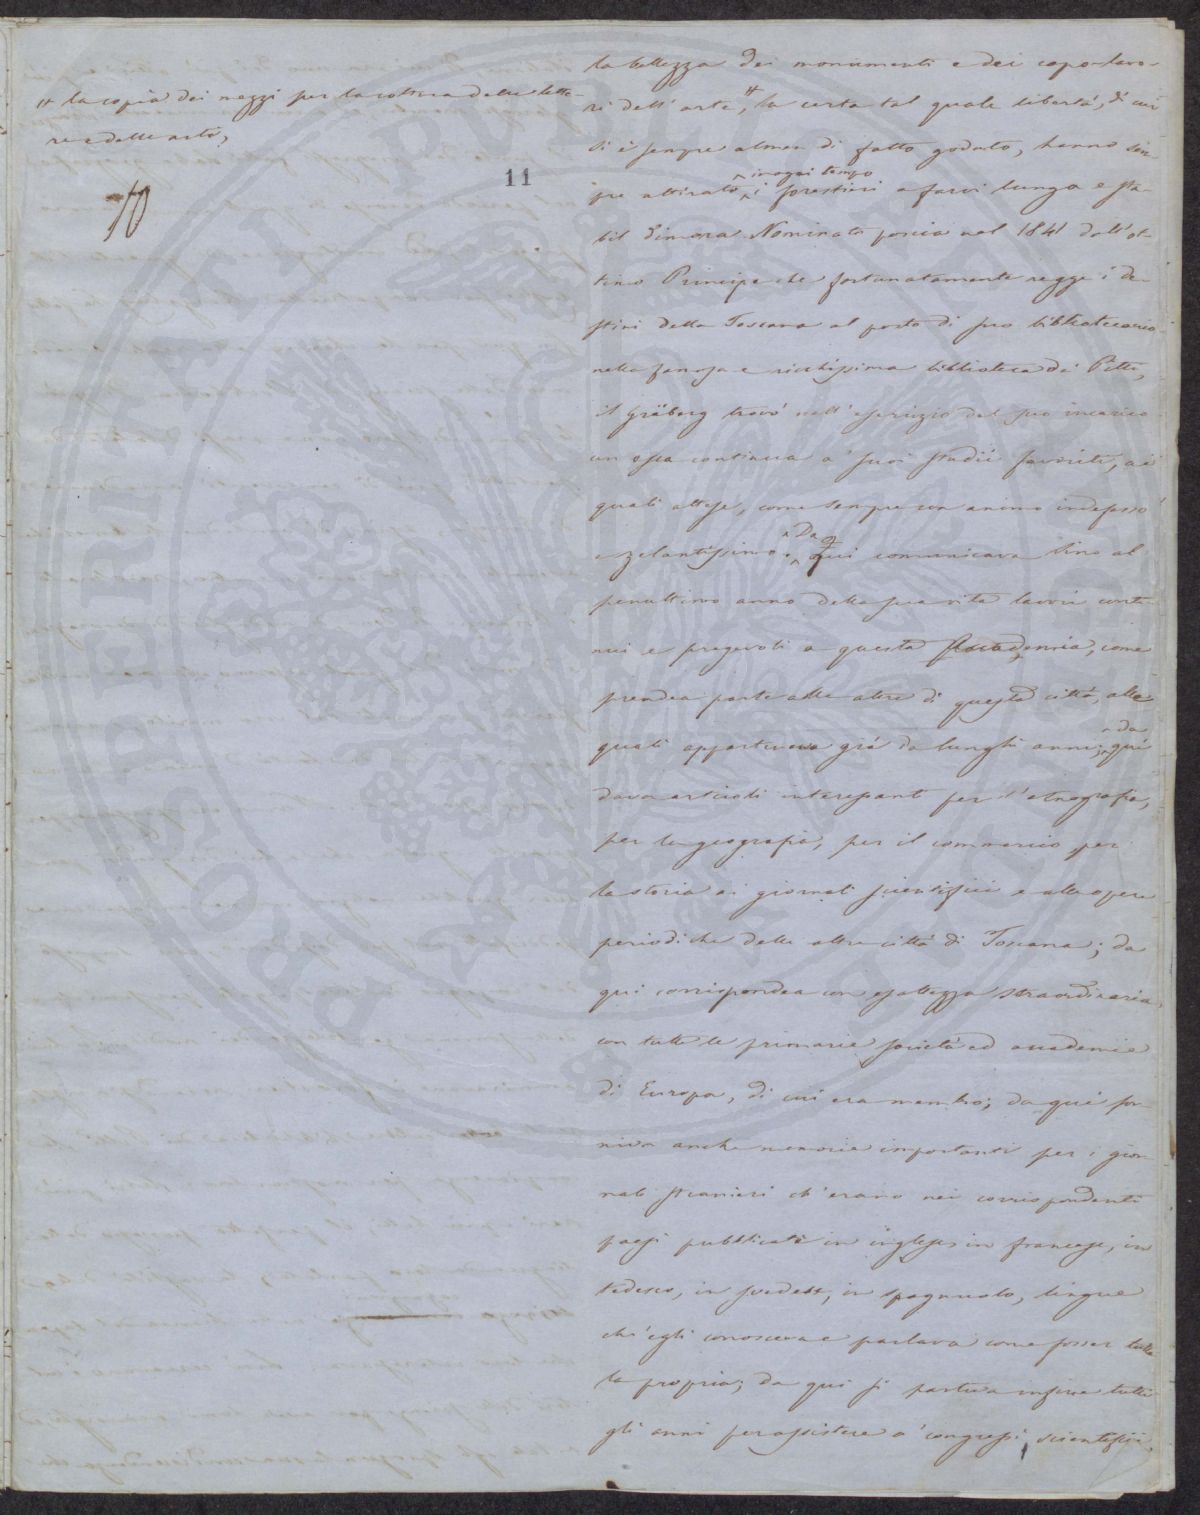 # la copia dei mezzi per la coltura delle lette-
re e delle arti,
10
11
la bellezza dei monumenti e dei capi d'avo-
ri dell'arte, # la certa tal quale libertà, di cui
si è sempre almen di fatto goduto, hanno sem-
in ogni tempo
pre attirato i forestieri a farvi lunga e sta-
bil dimora. Nominato poscia nel 1841 dall'ot-
timo Principe che fortunatamente regge i de-
stini della Toscana al posto di suo bibliotecario
nella famosa e ricchissima biblioteca de' Pitti,
il Gräberg trovò nell'esercizio del suo incarico
un esca continua a' suoi studii favoriti, ai
quali attese, come sempre con animo indefesso
Da
e zelantissimo. qui comunicava sino al
penultimo anno della sua vita lavori conti-
nui e pregevoli a questa Accademia, come
prendea parte alle altre di questa città, alle
da
quali apparteneva già da lunghi anni; qui
dava articoli interessanti per l'etnografia,
per la geografia, per il commercio, per
la storia ai giornali scientifici e alle opere
periodiche delle altre città di Toscana; da
qui corrispondea con esattezza straordinaria
con tutte le primarie società ed accademie
di Europa, di cui era membro; da qui for-
niva anche memorie importanti per i gior-
nali stranieri ch'erano nei corrispondenti
paesi pubblicati in inglese, in francese, in
tedesco, in svedese, in spagnuolo, lingue
ch'egli conosceva e parlava come fosser tutte
la propria; da qui si partiva infine tutti
gli anni per assistere a' congressi scientifici,